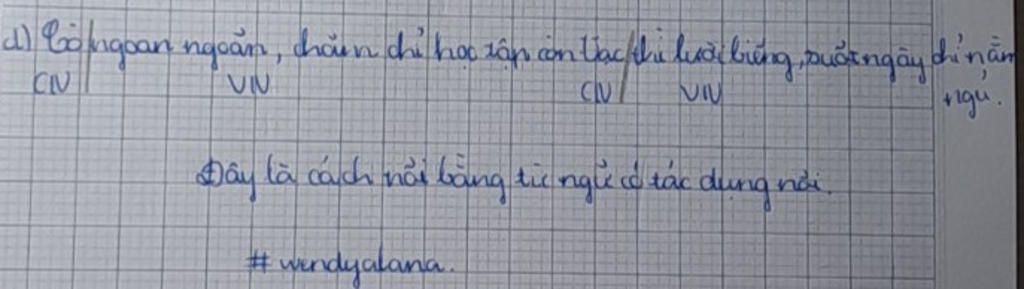 d) Cò/ngoan ngoãn, chăm chỉ học tập còn Vạc/thì lười biếng, suốt ngày chỉ nằm
CN VN CN VN ngủ.
Đây là cách nối bằng từ ngữ có tác dụng nối.
# wendyalana.